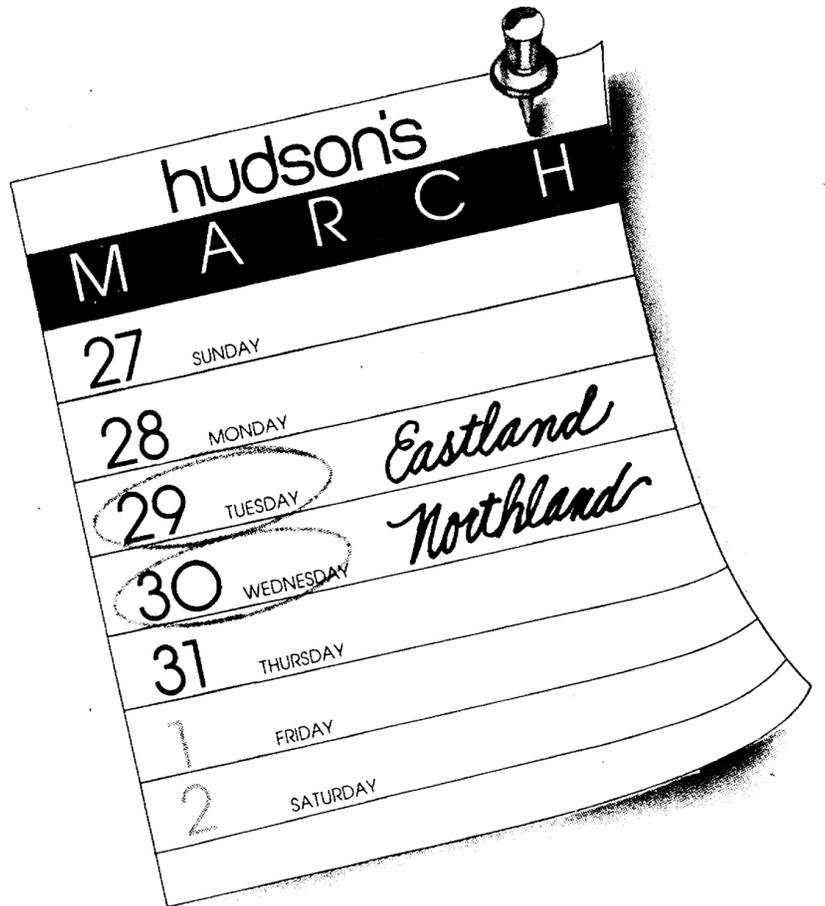 hudson's
MARCH
27 SUNDAY
28 MONDAY
29 TUESDAY Eastland
30 WEDNESDAY Northland
31 THURSDAY
1 FRIDAY
2 SATURDAY